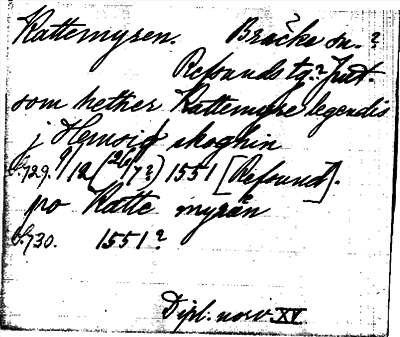 Kattemyren. Bräcke sn.?
Refsunds tg.? Jmt.
som hether Kattemyre legendis
j Hemsiø skoghin
s. 729. 9/12 (26/7?) 1551 [Refsund].
po Katte myrån
s. 730. 1551?
Dipl. norv. XV